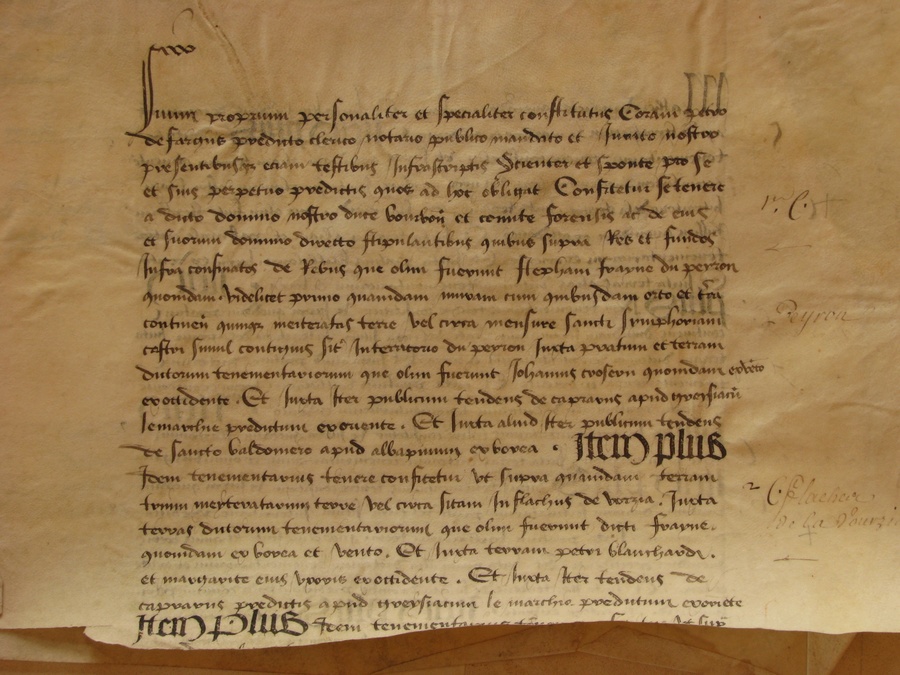 Suum proprium personaliter et specialiter constitutus Coram petro
de fargiis predicto clerico notario publico mandato et Jurato nostro
presentibusque eciam testibus Infrascriptis Scienter et sponte pro se
et suis perpetuo predictis quos ad hoc obligat Confitetur se tenere
a dicto domino nostro duce borbon et comite forensis ac de eius
et suorum dominio directo stipulantibus quibus supra Res et fundos
Infra confinatos de Rebus que olim fuerunt stephani frarye du perron
quondam. videlicet primo quamdam muram cum quibusdam orto et tra
continen quinque meiteratas terre vel circa mensure sancti symphoriani
castri simul contiguis sit In territorio du perron Juxta pratum et terram
dictorum tenementariorum que olim fuerunt Johannis croserii quondam ex vento
ex occidente. Et Juxta Iter publicum tendens de caprariis apud
le marchie predictum ex oriente. Et Juxta aliud Iter publicum tendens
de Sancto baldomero apud ex borea. Item plus
Idem tenementarius tenere confitetur ut supra quamdam terram
trium meyteratarum terre vel circa sitam In flachiis de vorzia. Juxta
terras dictorum tenementariorum que olim fuerunt dicti frarye.
quondam ex borea et vento. Et Juxta terram petri blanchardi.
et margarite eius uxoris ex occidente. Et Juxta Iter tendens de
caprariis predictis apud le marchie predictum ex oriente
Item plus Idem tenementarius
Peyron
de la Vourzi